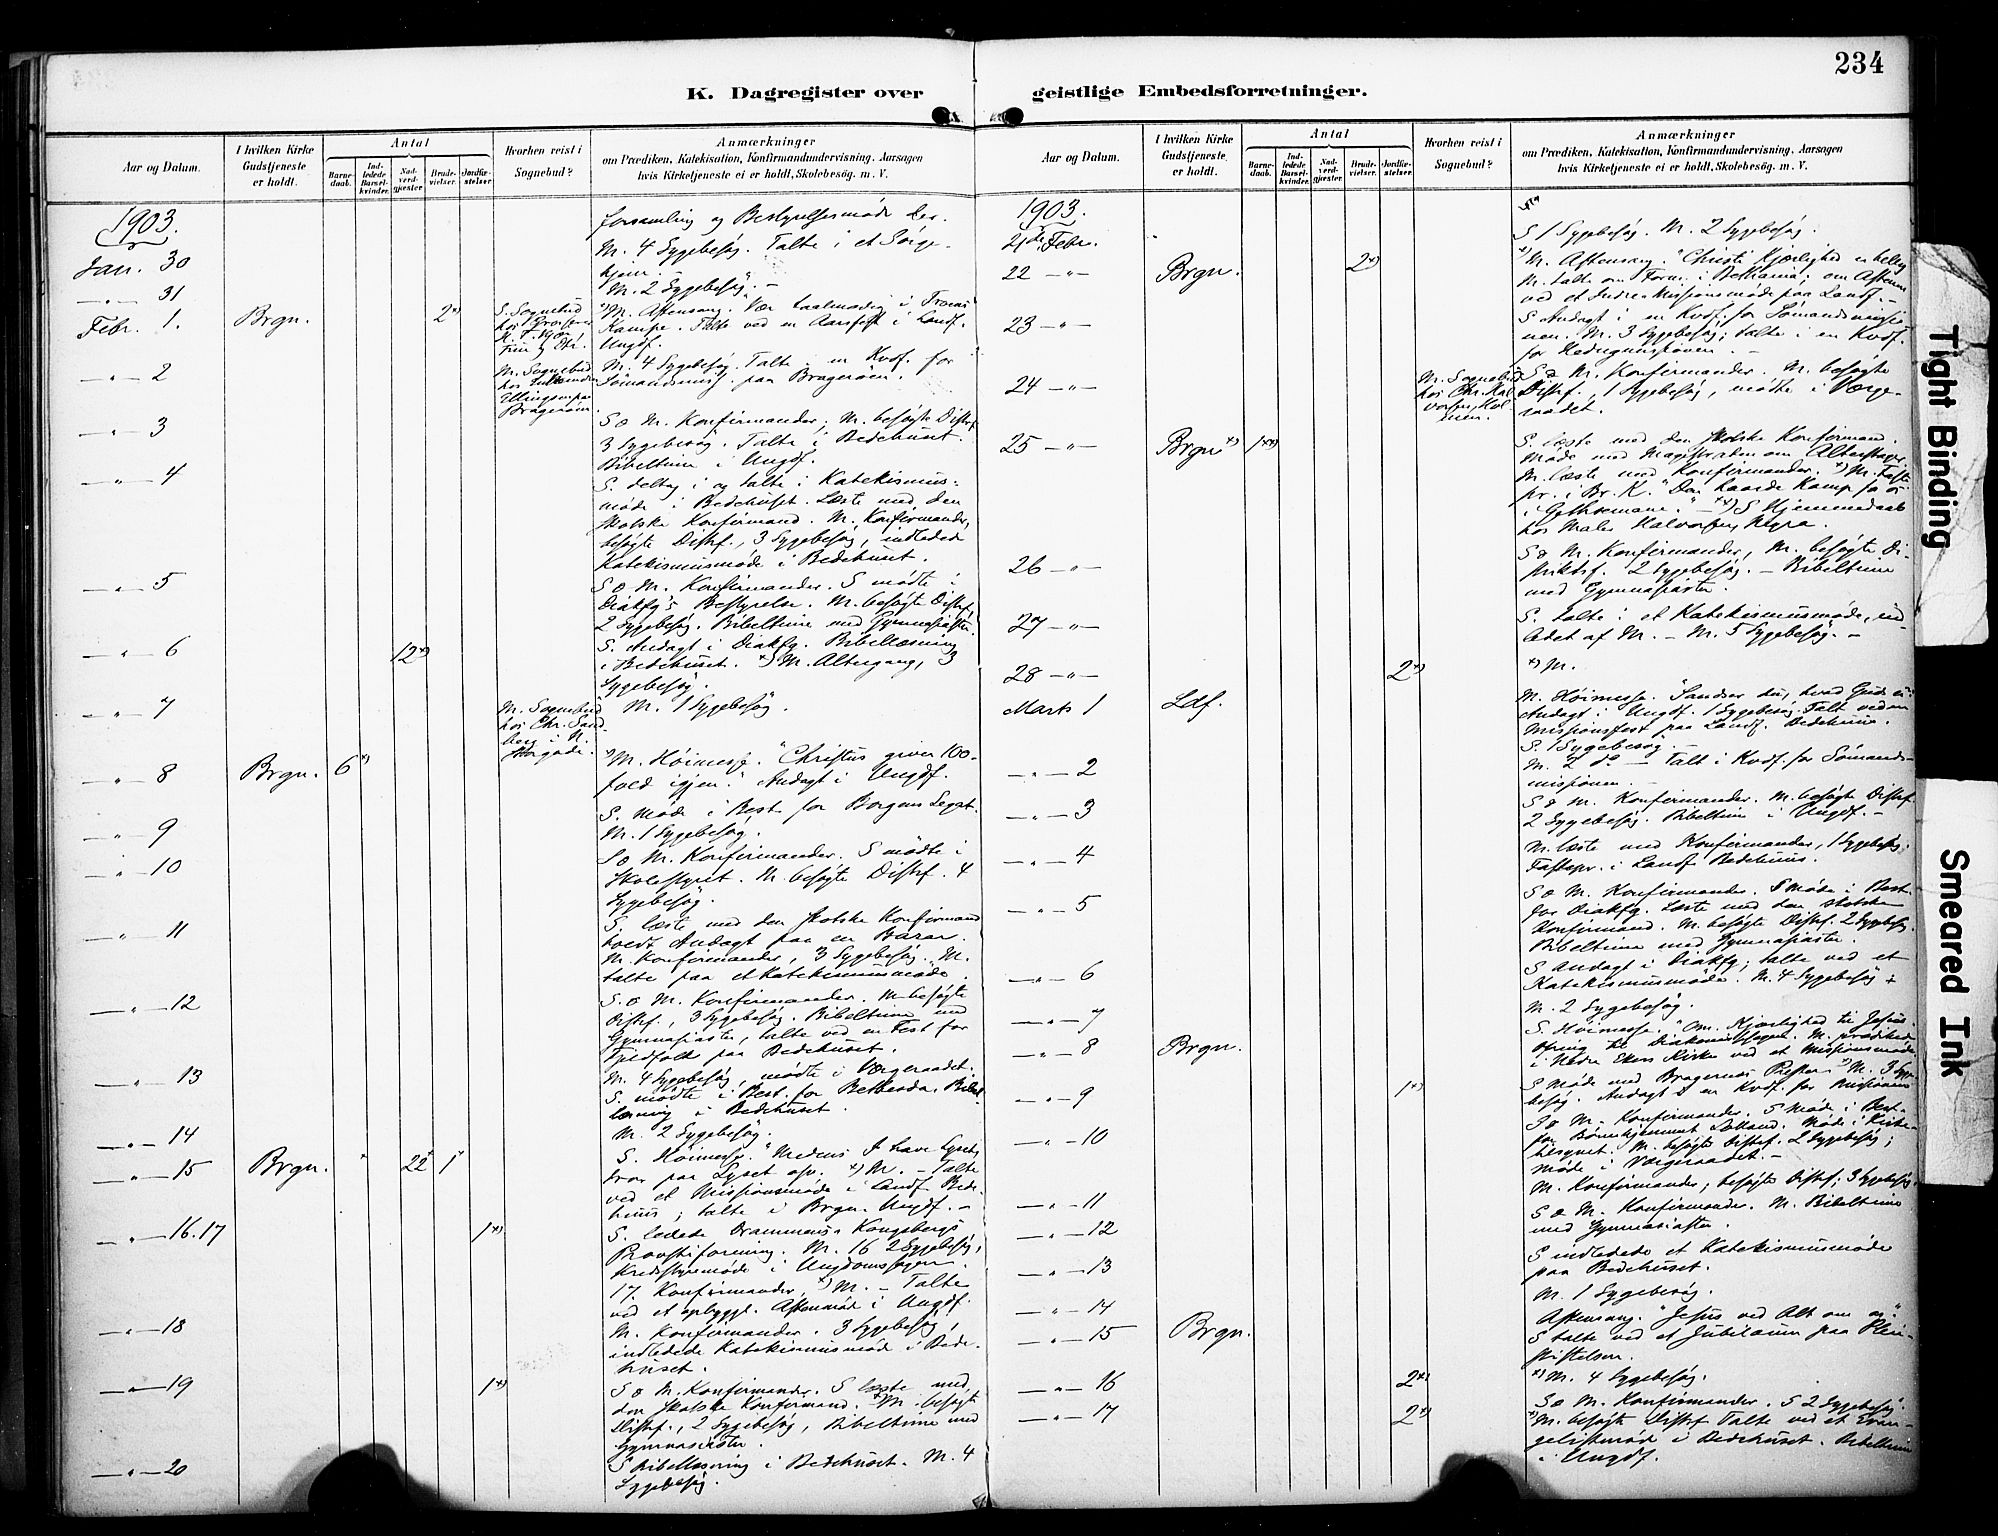 234
K. Dagregister over geistlige Embedsforretninger.
Aar og Datum.
I hvilken Kirke Gudstjeneste er holdt.
Antal
Barnedaab.
Indledede Barselkvinder.
Nadverdgjester.
Brudevielser.
Jordfæstelser.
Hvorhen reist i Sognebud?
Anmærkninger
om Prædiken, Katekisation, Konfirmandundervisning. Aarsagen
hvis Kirketjeneste ei er holdt, Skolebesøg. m. V.
1903.
forsamling og Bestyrelsesmøde der.
Jan. 30
M. 4 Sygebesøg. Talte i et Sørgehjem.
— " — 31
M. 2 Sygebesøg. —
Febr. 1. Brgn. 2 x)
S. Sognebud hos
x) M. Aftensang. "Vær taalmodig i Troens
Kampe. Talte ved en Aarsfest i Landf.
Ungdf.
— " — 2
M. Sognebud hos
Ellingsen paa
Bragerøen
M. 4 Sygebesøg. Talte i en Kvdf. for
Sømandsmis. paa Bragerøen.
— " — 3
S o M. Konfirmander; M. besøgte Distrf.
3 Sygebesøg. Talte i Bedehuset.
Bibeltime i Ungdf.
— " — 4
S. deltog i og talte i Katekismus-
møde i Bedehuset. Læste med den
skotske Konfirmand. M. Konfirmander,
besøgte Distrf., 3 Sygebesøg, indledede
Katekismusmøde i Bedehuset.
— " — 5
S o M. Konfirmander. S mødte i
Diakfg's Bestyrelse. M. besøgte Distrf,
2 Sygebesøg. Bibeltime med Gymnasiaster.
— " — 6 12 x)
S. Andagt i Diakfg. Bibellæsning
i Bedehuset. x) M. Altergang, 3
Sygebesøg.
— " — 7
M. Sognebud
hos Chr. Sand
berg i N.
Storgade.
M. 1 Sygebesøg.
— " — 8 Brgn. 6 x)
x) M. Høimesse. "Christus giver 100-
fold igjen." Andagt i Ungdf.
— " — 9
S. møde i Best. for Borgens Legat.
M. 1 Sygebesøg.
— " — 10
S o M. Konfirmander. S mødte i
Skolestyret. M. besøgte Distrf. 4
Sygebesøg.
— " — 11
S. læste med den skotske Konfirmand
holdt Andagt paa en Basar.
M. Konfirmander, 3 Sygebesøg. M.
talte paa et Katekismusmøde.
— " — 12
S. o M. Konfirmander. M. besøgte
Distrf., 3 Sygebesøg. Bibeltime med
Gymnasiaster, talte ved en Fest for
Fjeldfolk paa Bedehuset.
— " — 13
M. 4 Sygebesøg, mødte i Værgeraadet.
S. mødte i Best. for Bethesda. Bibel
læsning i Bedehuset.
— " — 14
M. 2 Sygebesøg.
— " — 15 Brgn. " 22 1
S. Høimesse. "Medens I have Lyset,
tror paa Lyset osv. x) M. — Talte
ved et Missionsmøde i Landf. Bede-
huus; talte i Brgn. Ungdf. —
— " — 16.17 1 x)
S. ledede Drammens o Kongsbergs
Provstiforening. M. 16 2 Sygebesøg,
Kredsstyremøde i Ungdomssagen
17. Konfirmander, x) M. — Talte
ved et opbyggl. Aftenmøde i Ungdf.
— " — 18
M. Konfirmander. 3 Sygebesøg,
indledede Katekismusmøde i Bede-
huset.
— " — 19 1 x)
S o M. Konfirmander. S læste med
den skotske Konfirmand. x) M. besøgte
Distrf., 2 Sygebesøg, Bibeltime med
Gymnasiaster.
— " — 20
S Bibellæsning i Bedehuset. M. 4
Sygebesøg.
Aar og Datum.
I hvilken Kirke Gudstjeneste er holdt.
Antal
Barnedaab.
Indledede Barselkvinder.
Nadverdgjester.
Brudevielser.
Jordfæstelser.
Hvorhen reist i Sognebud?
Anmærkninger
om Prædiken, Katekisation, Konfirmandundervisning. Aarsagen
hvis Kirketjeneste ei er holdt, Skolebesøg. m. V.
1903.
21de Febr.
S 1 Sygebesøg. M. 2 Sygebesøg.
22 — " — Brgn. 2 x)
x) M. Aftensang. "Christi Kjærlighed
M. talte om Form. i Bethania; om Aftenen
ved et Indre-Missionsmøde paa Landf. —
23 — " —
S Andagt i en Kvdf. for Sømandsmissio
nen. M. 3 Sygebesøg; talte i en Kvdf.
for Hedningmissionen. —
24 — " —
M. Sognebud
hos Chr. Hal
vorsen, Hol
men.
S o M. Konfirmander. M. besøgte
Distrf., 1 Sygebesøg, mødte i Værge-
raadet.
25 — " — Brgn x) 1 xx)
S. læste med den skotske Konfirmand.
Møde med Magistraten om
M. læste med Konfirmander. x) M. Faste
pr. i Br. K. "Den haarde Kamp for os
i Gethsemane." — xx) S Hjemmedaab
hos Maler Halvorsen,
26 — " —
S o M. Konfirmander, M. besøgte Di-
striktsf. 2 Sygebesøg. — Bibeltime
med Gymnasiaster.
27 — " —
S. talte i et Katekismusmøde, ind
ledet af M. — M. 5 Sygebesøg. —
28 — " — 2 x)
x) M.
Marts 1 Ldf.
M. Høimesse. "Sandser du, hvad Guds er"
Andagt i Ungdf. 1 Sygebesøg. Talt ved en
Missionsfest paa Landf. Bedehuus.
— " — 2
S. 1 Sygebesøg.
M. 2 do — Talt i Kvdf. for Sømands-
missionen. —
— " — 3
S o M. Konfirmander. M. besøgte Distrf.
2 Sygebesøg. Bibeltime i Ungdf. —
— " — 4
M. læste med Konfirmander, 1 Sygebesøg.
Fastepr. i Landf. Bedehuus.
— " — 5
S o M. Konfirmander. S møde i Best.
for Diakfg. Læste med den skotske
Konfirmand. M. besøgte Distrf. 2 Sygebesøg.
Bibeltime med Gymnasiaster.
— " — 6
S Andagt i Diakfg; talte ved et
Katekismusmøde. M. 4 Sygebesøg
— " — 7
M. 2 Sygebesøg.
— " — 8 Brgn.
S. Høimesse. "Om Kjærlighed til Jesus."
Ofring til Diakonissesagen. M. prædikede
i Nedre Ekers Kirke ved et Missionsmøde
— " — 9 1 x)
S Møde med Bragernes x) M. 3 Syge
besøg. Andagt i en Kvdf. for Missionen
— " — 10
S o M. Konfirmander. S Møde i Best.
for Børnehjemmet Møde i Kirke-
tilsynet. M. besøgte Distrf. 2 Sygebesøg;
møde i Værgeraadet. —
— " — 11
M. Konfirmander; besøgte Distrf; 3 Sygebesøg.
— " — 12
S o M. Konfirmander. M. Bibeltime
med Gymnasiaster.
— " — 13
S indledede et Katekismusmøde
paa Bedehuset.
— " — 14
M. 1 Sygebesøg.
— " — 15 Brgn.
Aftensang. "Jesus ved Alt om os."
S talte ved et Jubilæum paa Plei-
estiftelsen.
— " — 16 2 x)
x) M. 4 Sygebesøg.
— " — 17 2 x)
S o M. Konfirmander. S 2 Sygebesøg.
x) M. besøgte Distrf. Talte ved et Evan-
gelistmøde i Bedehuset. Bibeltime
i Ungdf.
Tight Binding
Smeared Ink